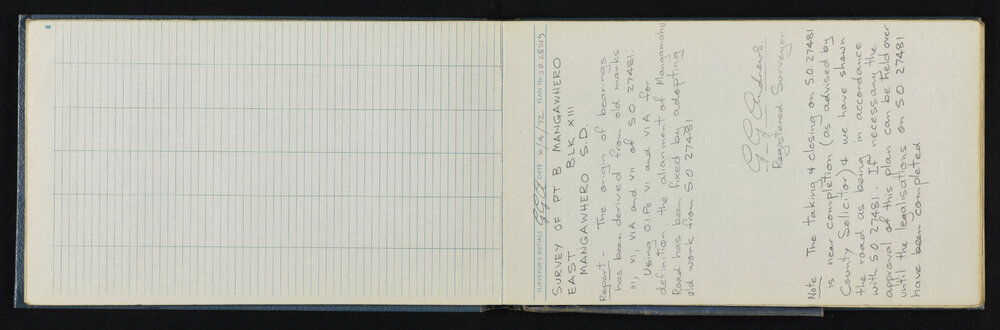 SURVEYOR'S INITIALS GGA DATE 10/4/72 PLAN No. S.O. 28519
SURVEY OF PT B MANGAWHERO
EAST BLK XIII
MANGAWHERO S.D.
Report - The origin of bearings
has been derived from old marks
III, VI, VIA and VII of SO 27481.
Using OIPs VI and VIA for
definition the alignment of Mangamahu
Road has been fixed by adopting
old work from SO 27481
G-G Andrews
Registered Surveyor
Note The taking & closing on S.O. 27481
is near completion (as advised by
County Solicitor) & we have shown
the road as being in accordance
with S.O 27481. If necessary the
approval of this plan can be held over
until the legalisations on SO 27481
have been completed